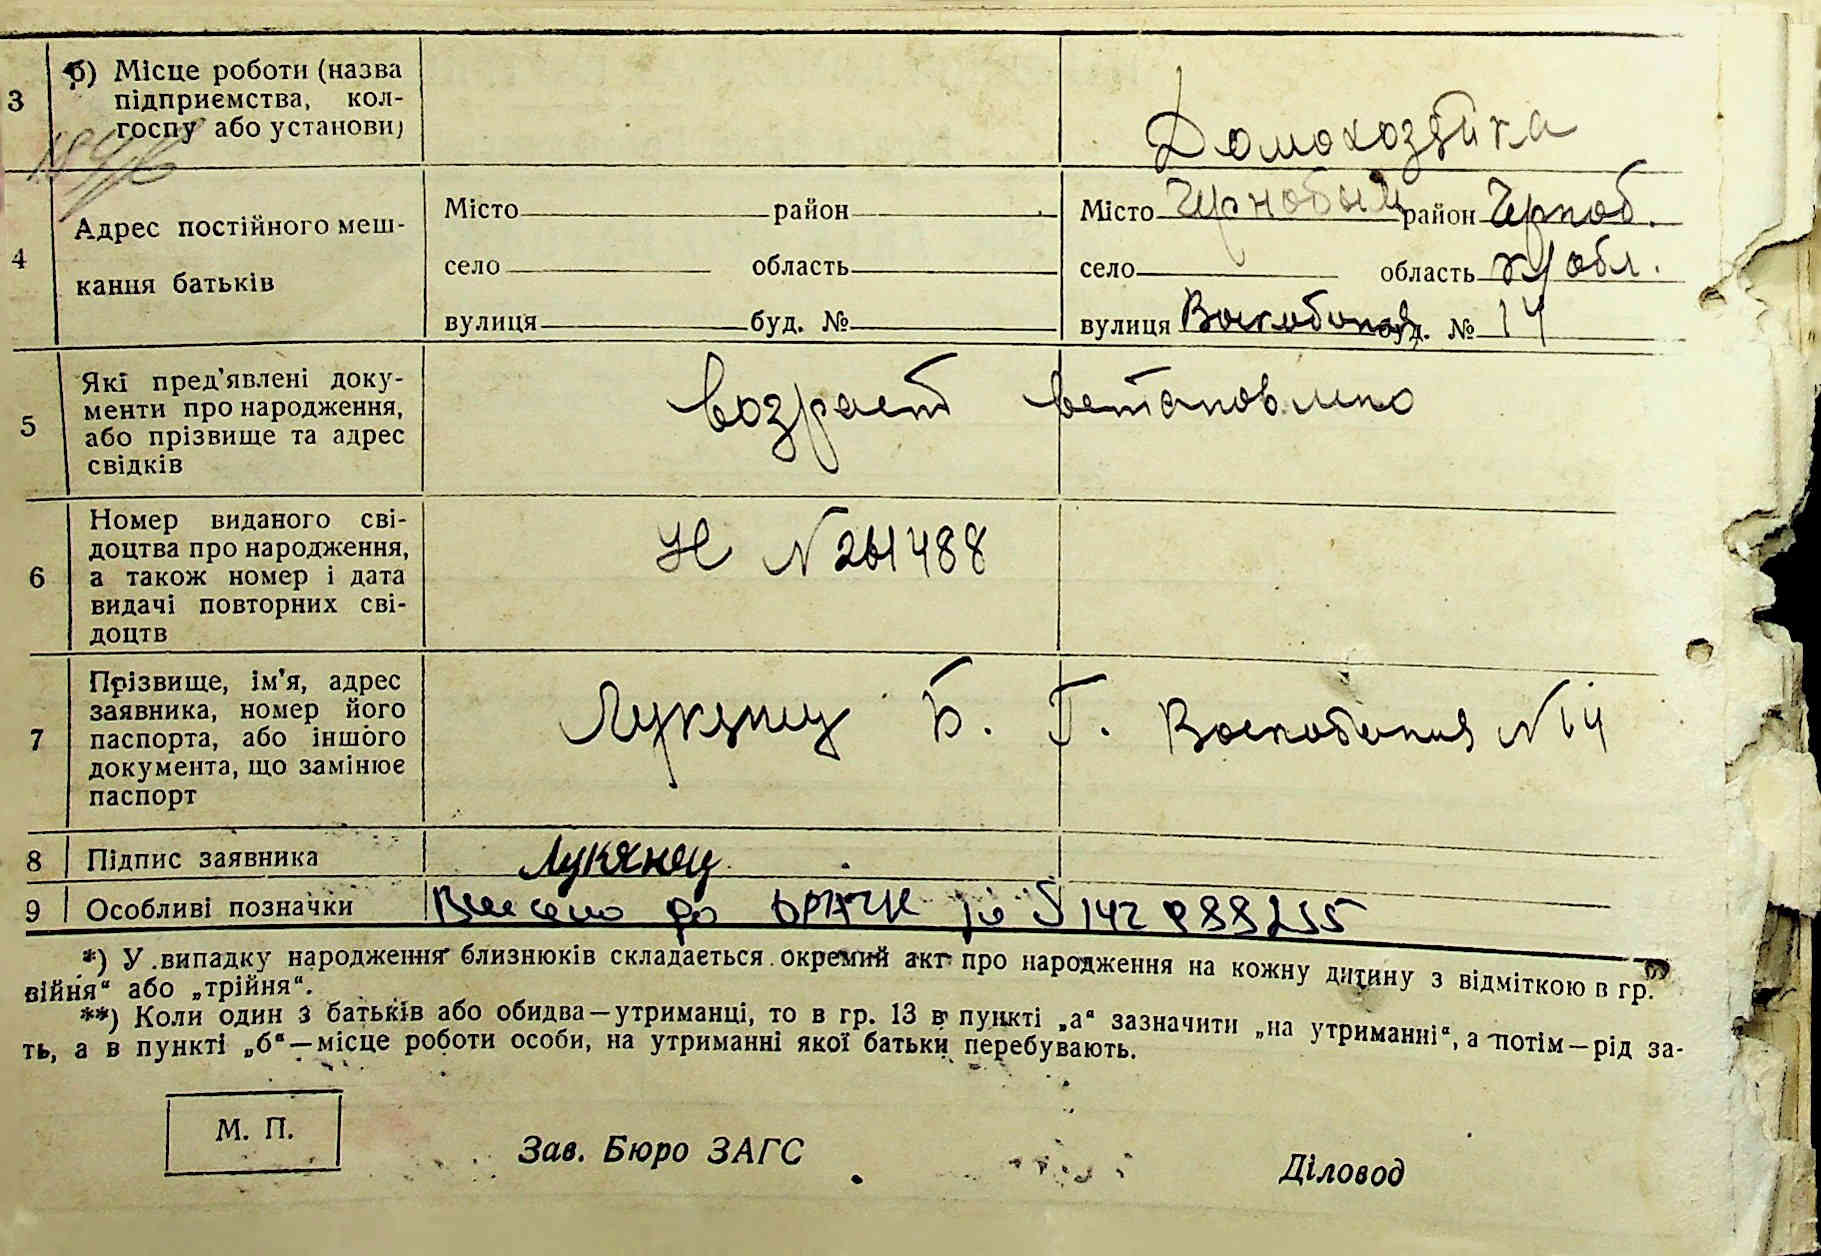 3 б) Місце роботи (назва
підприємства, кол-
госпу або установи)
Домохозяйка
4 Адрес постійного меш-
кання батьків
Місто район Місто Чернобыль район Черноб.
село область село область обл.
вулиця буд. № вулиця буд. № 14
5 Які пред'явлені доку-
менти про народження,
або прізвище та адрес
свідків
возраст встановлено
6 Номер виданого сві-
доцтва про народження,
а також номер і дата
видачі повторних сві-
доцтв
N 261488
7 Прізвище, ім'я, адрес
заявника, номер його
паспорта, або іншого
документа, що замінює
паспорт
Лукянец Б. Г. N 14
8 Підпис заявника Лукянец
9 Особливі позначки Внесено до ДРАЦС
*) У випадку народження близнюків складається окремий акт про народження на кожну дитину з відміткою в гр.
війня" або „трійня".
**) Коли один з батьків або обидва—утриманці, то в гр. 13 в пункті „а" зазначити „на утриманні", а потім—рід за-
ть, а в пункті „б"—місце роботи особи, на утриманні якої батьки перебувають.
М. П.
Зав. Бюро ЗАГС
Діловод